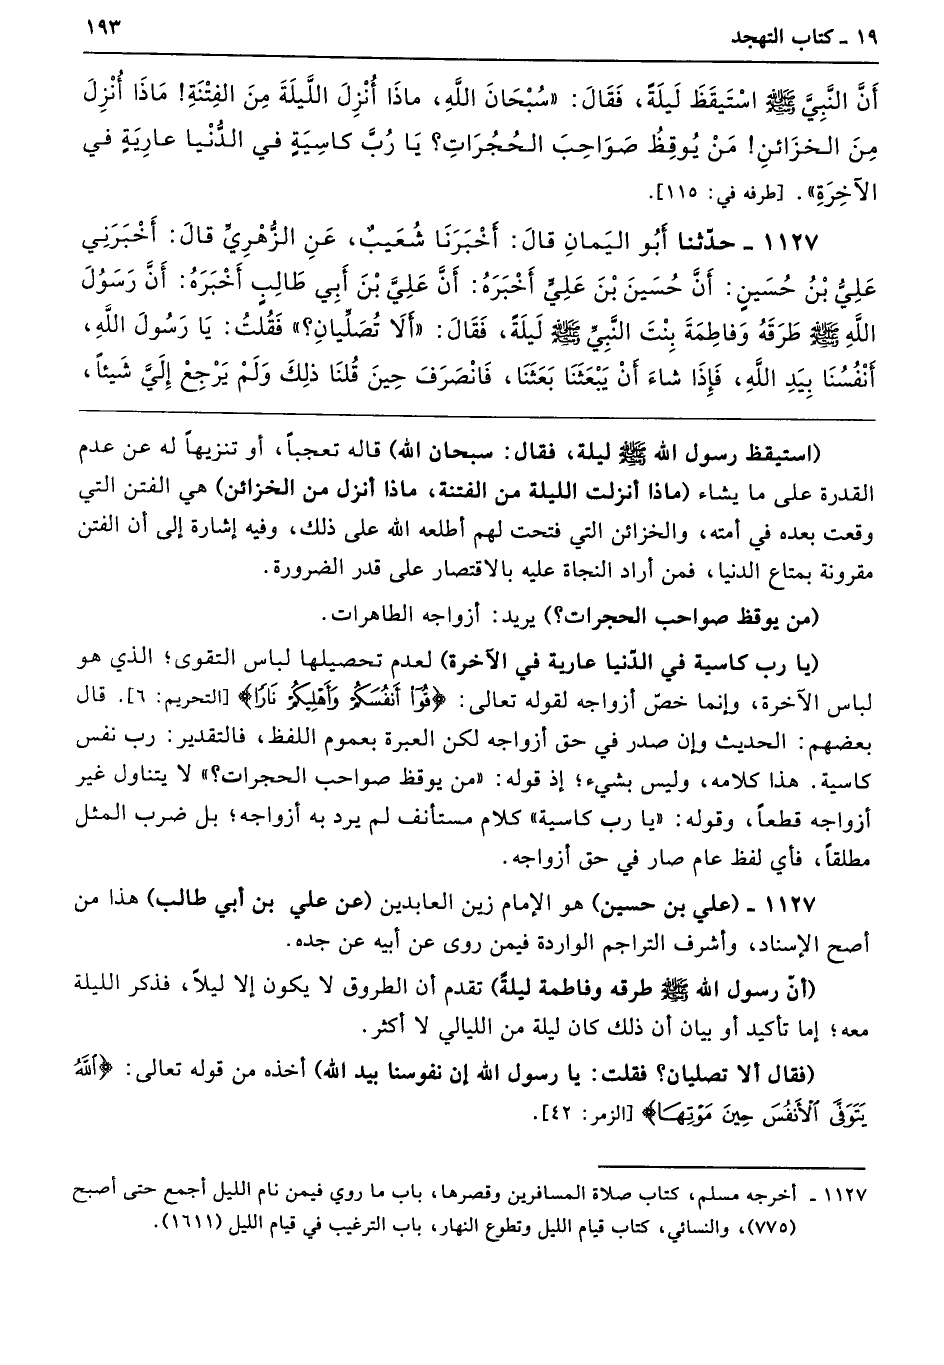 ١٩ ـ كتاب التهجد
١٩٣
أَنَّ النَّبِيَّ ﷺ اسْتَيقَظَ لَيلَةً، فَقَالَ: «سُبْحَانَ اللَّهِ، ماذَا أُنْزِلَ اللَّيلَةَ مِنَ الفِتْنَةِ! مَاذَا أُنْزِلَ
مِنَ الـخزَائنِ! مَنْ يُوقِظُ صَوَاحِبَ الـحُجُرَاتِ؟ يَا رُبَّ كاسِيَةٍ في الدُّنْيا عارِيَةٍ في
الآخِرَةِ». [طرفه في: ١١٥].
١١٢٧ ـ حدّثنا أَبُو اليَمانِ قالَ: أَخْبَرَنَا شُعَيبٌ، عَنِ الزُّهْرِيِّ قالَ: أَخْبَرَنِي
عَلِيُّ بْنُ حُسَينٍ: أَنَّ حُسَينَ بْنَ عَلِيٍّ أَخْبَرَهُ: أَنَّ عَلِيَّ بْنَ أَبِي طَالِبٍ أَخْبَرَهُ: أَنَّ رَسَوُلَ
اللَّهِ ﷺ طَرَقَهُ وَفاطِمَةَ بِنْتَ النَّبِيِّ ﷺ لَيلَةً، فَقَالَ: «أَلَا تُصَلِّيانِ؟» فَقُلتُ: يَا رَسُولَ اللَّهِ،
أَنْفُسُنَا بِيَدِ اللَّهِ، فَإِذَا شاءَ أَنْ يَبْعَثَنَا بَعَثَنَا، فَانْصَرَفَ حِينَ قُلنَا ذلِكَ وَلَمْ يَرْجِعْ إِلَيَّ شَيئاً،
(استيقظ رسول الله ﷺ ليلة، فقال: سبحان الله) قاله تعجباً، أو تنزيهاً له عن عدم
القدرة على ما يشاء (ماذا أنزلت الليلة من الفتنة، ماذا أنزل من الخزائن) هي الفتن التي
وقعت بعده في أمته، والخزائن التي فتحت لهم أطلعه الله على ذلك، وفيه إشارة إلى أن الفتن
مقرونة بمتاع الدنيا، فمن أراد النجاة عليه بالاقتصار على قدر الضرورة.
(من يوقظ صواحب الحجرات؟) يريد: أزواجه الطاهرات.
(يا رب كاسية في الدّنيا عارية في الآخرة) لعدم تحصيلها لباس التقوى؛ الذي هو
لباس الآخرة، وإنما خصّ أزواجه لقوله تعالى: ﴿قُوٓا۟ أَنفُسَكُمۡ وَأَهۡلِيكُمۡ نَارًا﴾ [التحريم: ٦]. قال
بعضهم: الحديث وإن صدر في حق أزواجه لكن العبرة بعموم اللفظ، فالتقدير: رب نفس
كاسية. هذا كلامه، وليس بشيء؛ إذ قوله: «من يوقظ صواحب الحجرات؟» لا يتناول غير
أزواجه قطعاً، وقوله: «يا رب كاسية» كلام مستأنف لم يرد به أزواجه؛ بل ضرب المثل
مطلقاً، فأي لفظ عام صار في حق أزواجه.
١١٢٧ ـ (علي بن حسين) هو الإمام زين العابدين (عن علي بن أبي طالب) هذا من
أصح الإسناد، وأشرف التراجم الواردة فيمن روى عن أبيه عن جده.
(أنّ رسول الله ﷺ طرقه وفاطمة ليلةً) تقدم أن الطروق لا يكون إلا ليلاً، فذكر الليلة
معه؛ إما تأكيد أو بيان أن ذلك كان ليلة من الليالي لا أكثر.
(فقال ألا تصليان؟ فقلت: يا رسول الله إن نفوسنا بيد الله) أخذه من قوله تعالى: ﴿ٱللَّهُ
يَتَوَفَّى ٱلۡأَنفُسَ حِينَ مَوۡتِهَا﴾ [الزمر: ٤٢].
١١٢٧ ـ أخرجه مسلم، كتاب صلاة المسافرين وقصرها، باب ما روي فيمن نام الليل أجمع حتى أصبح
(٧٧٥)، والنسائي، كتاب قيام الليل وتطوع النهار، باب الترغيب في قيام الليل (١٦١١).